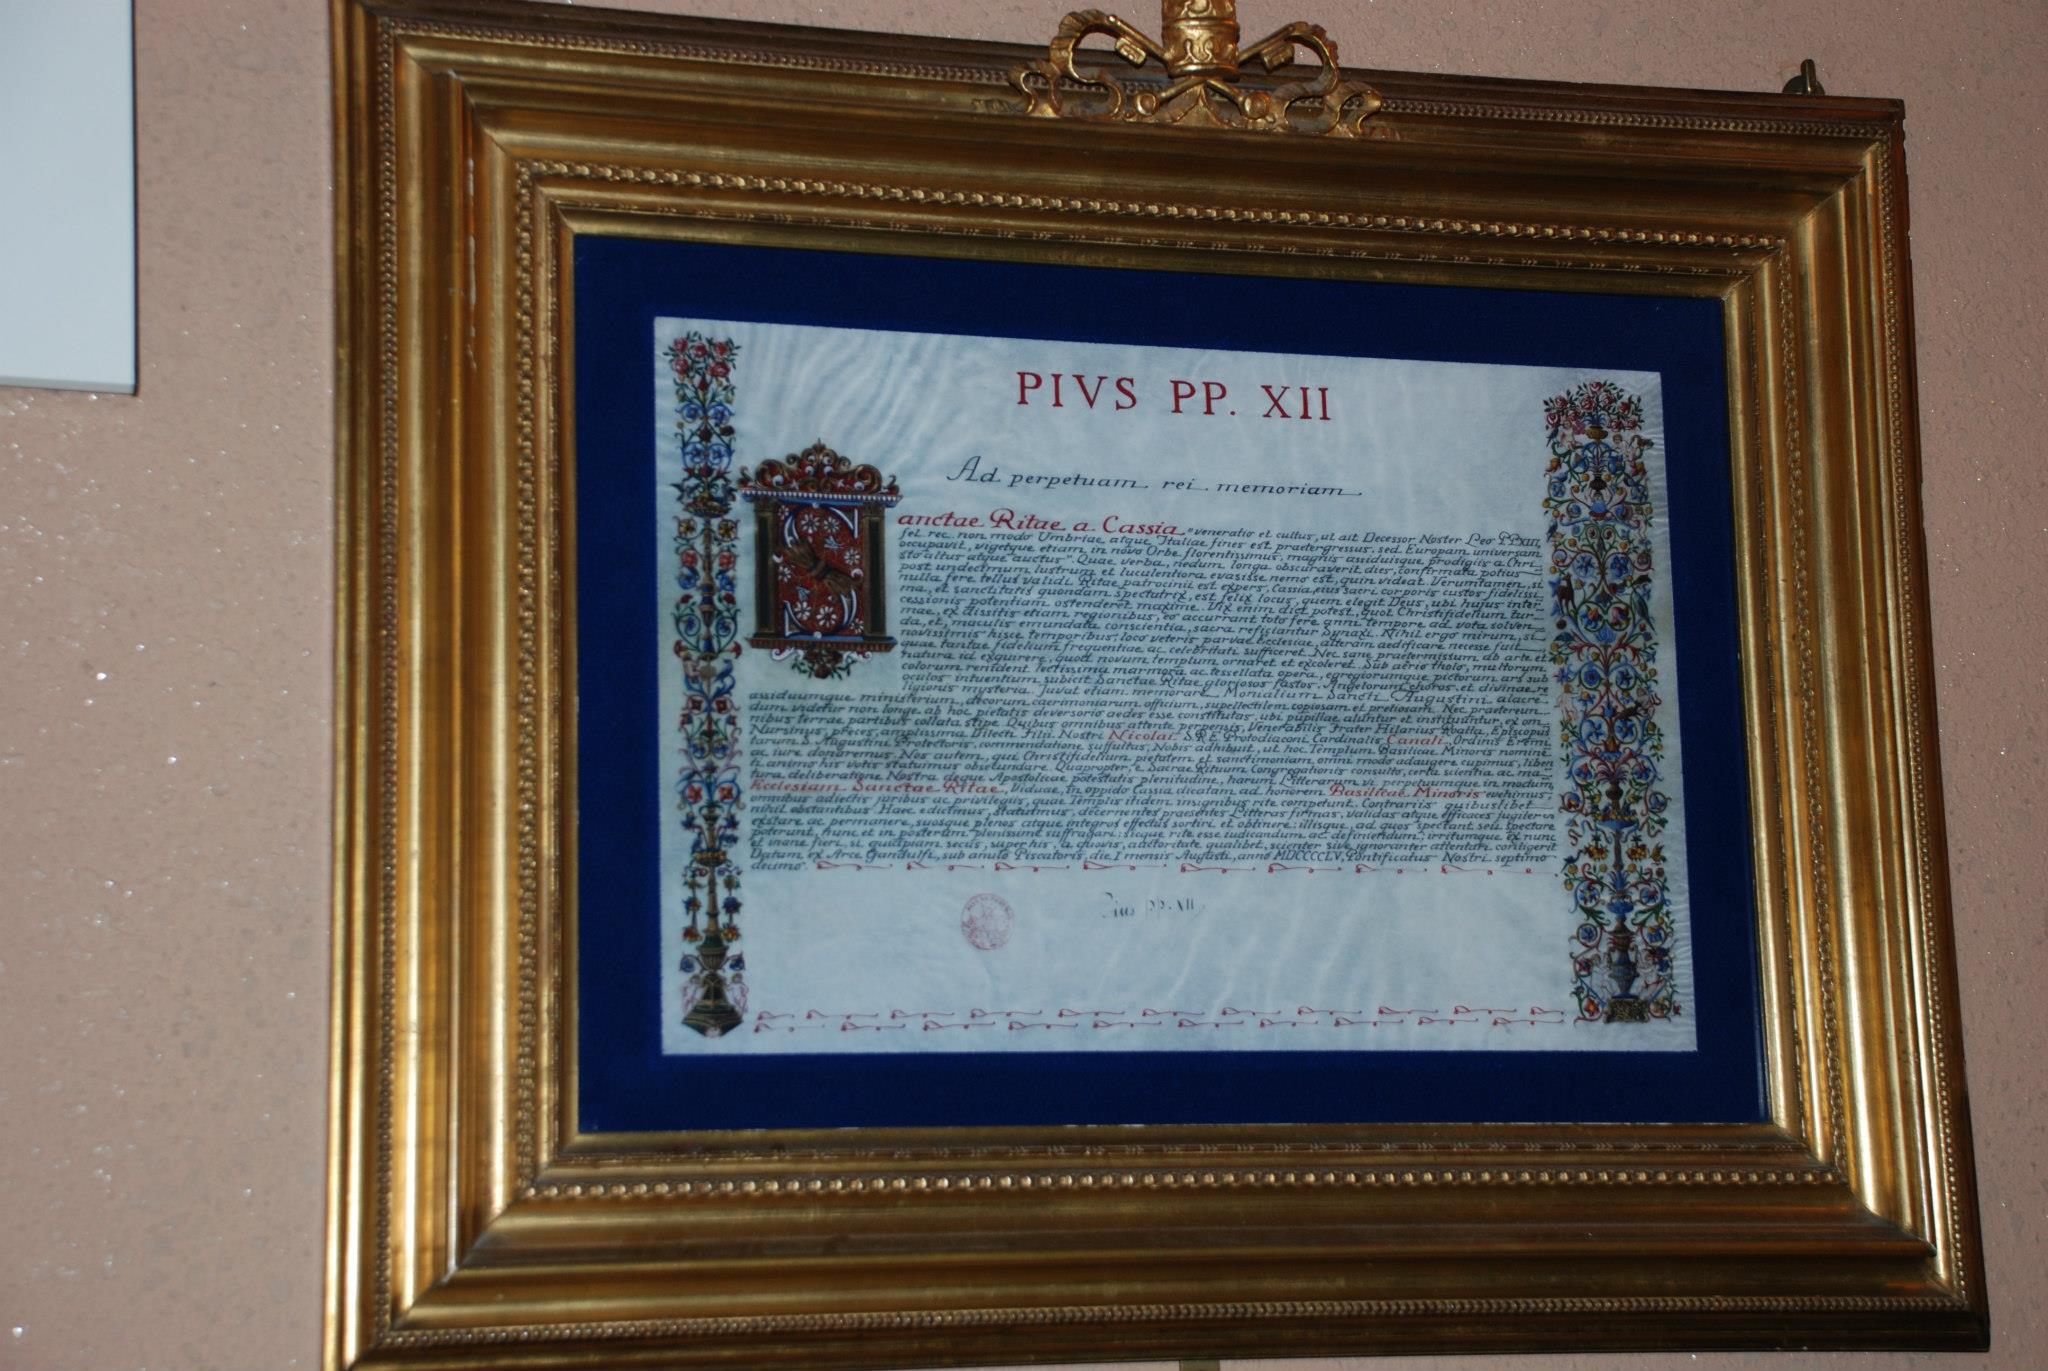 PIVS PP. XII
Ad perpetuam rei memoriam
Sanctae Ritae a Cassia "veneratio et cultus, ut ait Decessor Noster Leo PP. XIII,
fel. rec. non modo Umbriae atque Italiae fines est praetergressus, sed Europam universam
occupavit, vigetque etiam in novo Orbe florentissimus, magnis assiduisque prodigiis a Chri-
sto altus atque auctus". Quae verba, nedum longa obscuraverit dies, confirmata potius
post undecimum lustrum et luculentiora evasisse nemo est, quin videat. Verumtamen, si
nulla fere tellus validi Ritae patrocinii est expers, Cassia, eius sacri corporis custos fidelissi-
ma, et sanctitatis quondam spectatrix, est felix locus, quem elegit Deus, ubi hujus inter-
cessionis potentiam ostenderet maxime. Vix enim dici potest, quot Christifidelium tur-
mae, ex dissitis etiam regionibus, eo accurrant toto fere anni tempore ad vota solven-
da, et, maculis emundata conscientia, sacra reficiantur Synaxi. Nihil ergo mirum, si
novissimis hisce temporibus, loco veteris parvae Ecclesiae, alteram aedificare necesse fuit
quae tantae fidelium frequentiae ac celebritati sufficeret. Nec sane praetermissum ab arte et
natura id exquirere, quod novum templum ornaret et excoleret. Sub aerio tholo, multorum
colorum renident lectissima marmora ac tessellata opera, egregiorumque pictorum ars sub
oculos intuentium subicit Sanctae Ritae gloriosos fastos, Angelorum choros et divinae re-
ligionis mysteria. Juvat etiam memorare Monialium Sancti Augustini alacre
assiduumque ministerium, decorum caerimoniarum officium, supellectilem copiosam et pretiosam. Nec praetereun-
dum videtur non longe ab hoc pietatis deversorio aedes esse constitutas, ubi pupillae aluntur et instituuntur, ex om-
nibus terrae partibus collata stipe. Quibus omnibus attente perpensis, Venerabilis Frater Hilarius Roatta, Episcopus
Nursinus, preces, amplissima Dilecti Filii Nostri Nicolai S.R.E. Protodiaconi Cardinalis Canali, Ordinis Eremi-
tarum S. Augustini Protectoris, commendatione suffultas, Nobis adhibuit, ut hoc Templum Basilicae Minoris nomine
ac iure donaremus. Nos autem, qui Christifidelium pietatem et sanctimoniam omni modo adaugere cupimus, liben-
ti animo his votis statuimus obsecundare. Quapropter, e Sacrae Rituum Congregationis consulto, certa scientia ac ma-
tura deliberatione Nostra deque Apostolicae potestatis plenitudine, harum Litterarum vi perpetuumque in modum,
Ecclesiam Sanctae Ritae, Viduae, in oppido Cassia dicatam ad honorem Basilicae Minoris evehimus,
omnibus adiectis juribus ac privilegiis, quae Templis itidem insignibus rite competunt. Contrariis quibuslibet
nihil obstantibus. Haec edicimus, statuimus, decernentes praesentes Litteras firmas, validas atque efficaces jugiter
exstare ac permanere, suosque plenos atque integros effectus sortiri et obtinere; illisque, ad quos spectant seu spectare
poterunt, nunc et in posterum plenissime suffragari; sicque rite esse iudicandum ac definiendum; irritumque ex nunc
et inane fieri, si quidpiam secus, super his, a quovis, auctoritate qualibet, scienter sive ignoranter attentari contigerit.
Datum ex Arce Gandulfi, sub anulo Piscatoris, die I mensis Augusti, anno MDCCCCLV, Pontificatus Nostri septimo
decimo.
Pius PP. XII